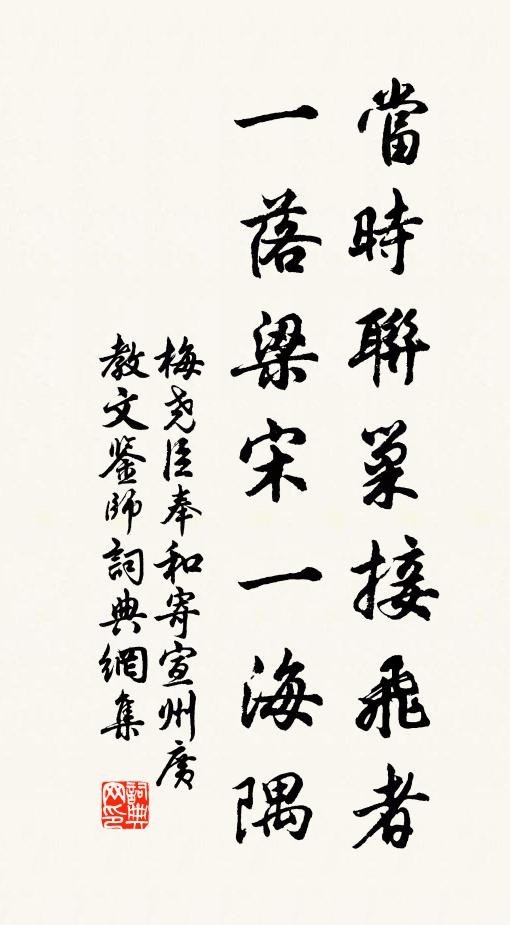 當時聯巢接飛者
一落梁宋一海隅
梅尧臣奉和寄宣州廣
教文鉴師詞典網集
詞典
网印